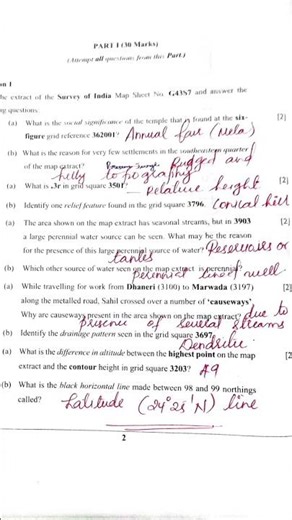 PART I (30 Marks)
(Attempt all questions from this Part.)
on 1
he extract of the Survey of India Map Sheet No. G43S7 and answer the
ng questions:
(a) What is the social significance of the temple that is found at the six-
figure grid reference 362001? Annual fair (Mela) [2]
(b) What is the reason for very few settlements in the southeastern quarter
of the map extract? Rugged and
hilly topography
(a) What is .3r in grid square 3501? Relative height [2]
(b) Identify one relief feature found in the grid square 3796. Conical hill
(a) The area shown on the map extract has seasonal streams, but in 3903 [2]
a large perennial water source can be seen. What may be the reason
for the presence of this large perennial source of water? Reservoirs or
tanks
(b) Which other source of water seen on the map extract is perennial? Perennial lined well
(a) While travelling for work from Dhaneri (3100) to Marwada (3197) [2]
along the metalled road, Sahil crossed over a number of 'causeways'.
Why are causeways present in the area shown on the map extract? due to
presence of several streams
(b) Identify the drainage pattern seen in the grid square 3697. Dendritic
(a) What is the difference in altitude between the highest point on the map [2
extract and the contour height in grid square 3203? 49
(b) What is the black horizontal line made between 98 and 99 northings
called? Latitude (24°25'N) line
2